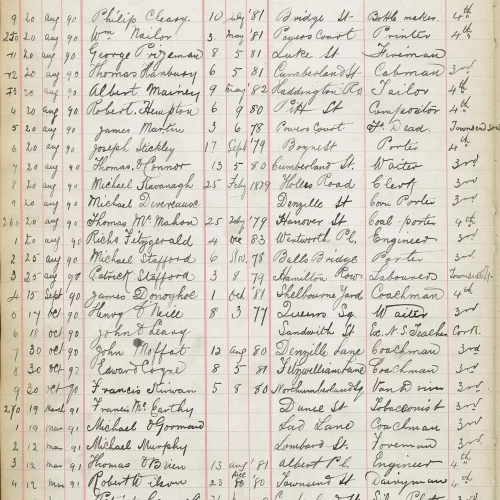 9 20 aug 90 Philip Cleary. 10 July '81 Bridge St. Bottle maker. 4th
250 20 aug 90 Wm Nailor 3 May '81 Powers Court Printer 4th
1 20 aug 90 George Prizeman 8 5 81 Luke St Fireman
2 20 aug 90 Thomas Hanbury 6 5 81 Cumberland St Cabman 3rd
3 20 aug 90 Albert Mainey 9 May '82 Haddington Rd Tailor 4th
4 20 aug 90 Robert Hempton 6 9 80 Pitt St Compositor 4th
5 20 aug 90 James Martin 3 6 78 Powers Court Fr. Dead. Townsend
6 20 aug 90 Joseph Stickley 17 Sept '79 Boyne St Porter 4th
7 20 aug 90 Thomas O'Connor 13 5 80 Cumberland St. Waiter 3rd
8 20 aug 90 Michael Kavanagh 25 Feby 1879 Holles Road Clerk 3rd
9 20 aug 90 Michael Devereux Denzille St Corn Porter 3rd
260 20 aug 90 Thomas McMahon 25 '79 Hanover St Coal-porter 4th
1 20 aug 90 Richd Fitzgerald 4 Dec 83 Wentworth Pl. Engineer 3rd
2 25 aug 90 Michael Stafford 6 Nov. 78 Balls Bridge Porter 3rd
3 25 aug 90 Patrick Stafford 3 8 79 Hamilton Row Labourer
4 15 Sept 90 James Donoghoe 1 Oct 81 Shelbourne Yard Coachman 4th
5 17 oct 90 Henry O'Neill 8 3 77 Queens Sq. Waiter 3rd
6 18 oct 90 John O'Leary Sandwith St Ex. N.S Teacher Cork.
7 30 oct 90 John Moffat 12 aug 80 Denzille Lane Coachman 3rd
8 30 oct 90 Edward Coyne 8 5 81 Fitzwilliam Lane Coachman 3rd
9 30 oct 90 Francis Kirwan 5 8 80 Northumberland Sq Van driver 3rd
270 19 March 91 Francis McCarthy Duke St Tobacconist 3rd
1 19 Mar 91 Michael O'Gorman Lad Lane Coachman 3rd
2 12 Mar 91 Michael Murphy Lombard St. Foreman 3rd
3 12 Mar 91 Thomas O'Brien 13 aug '81 Albert Pl. Engineer 4th
4 12 Mar 91 Robert Wilson 23 Dec 80 Townsend St Dairyman 4th